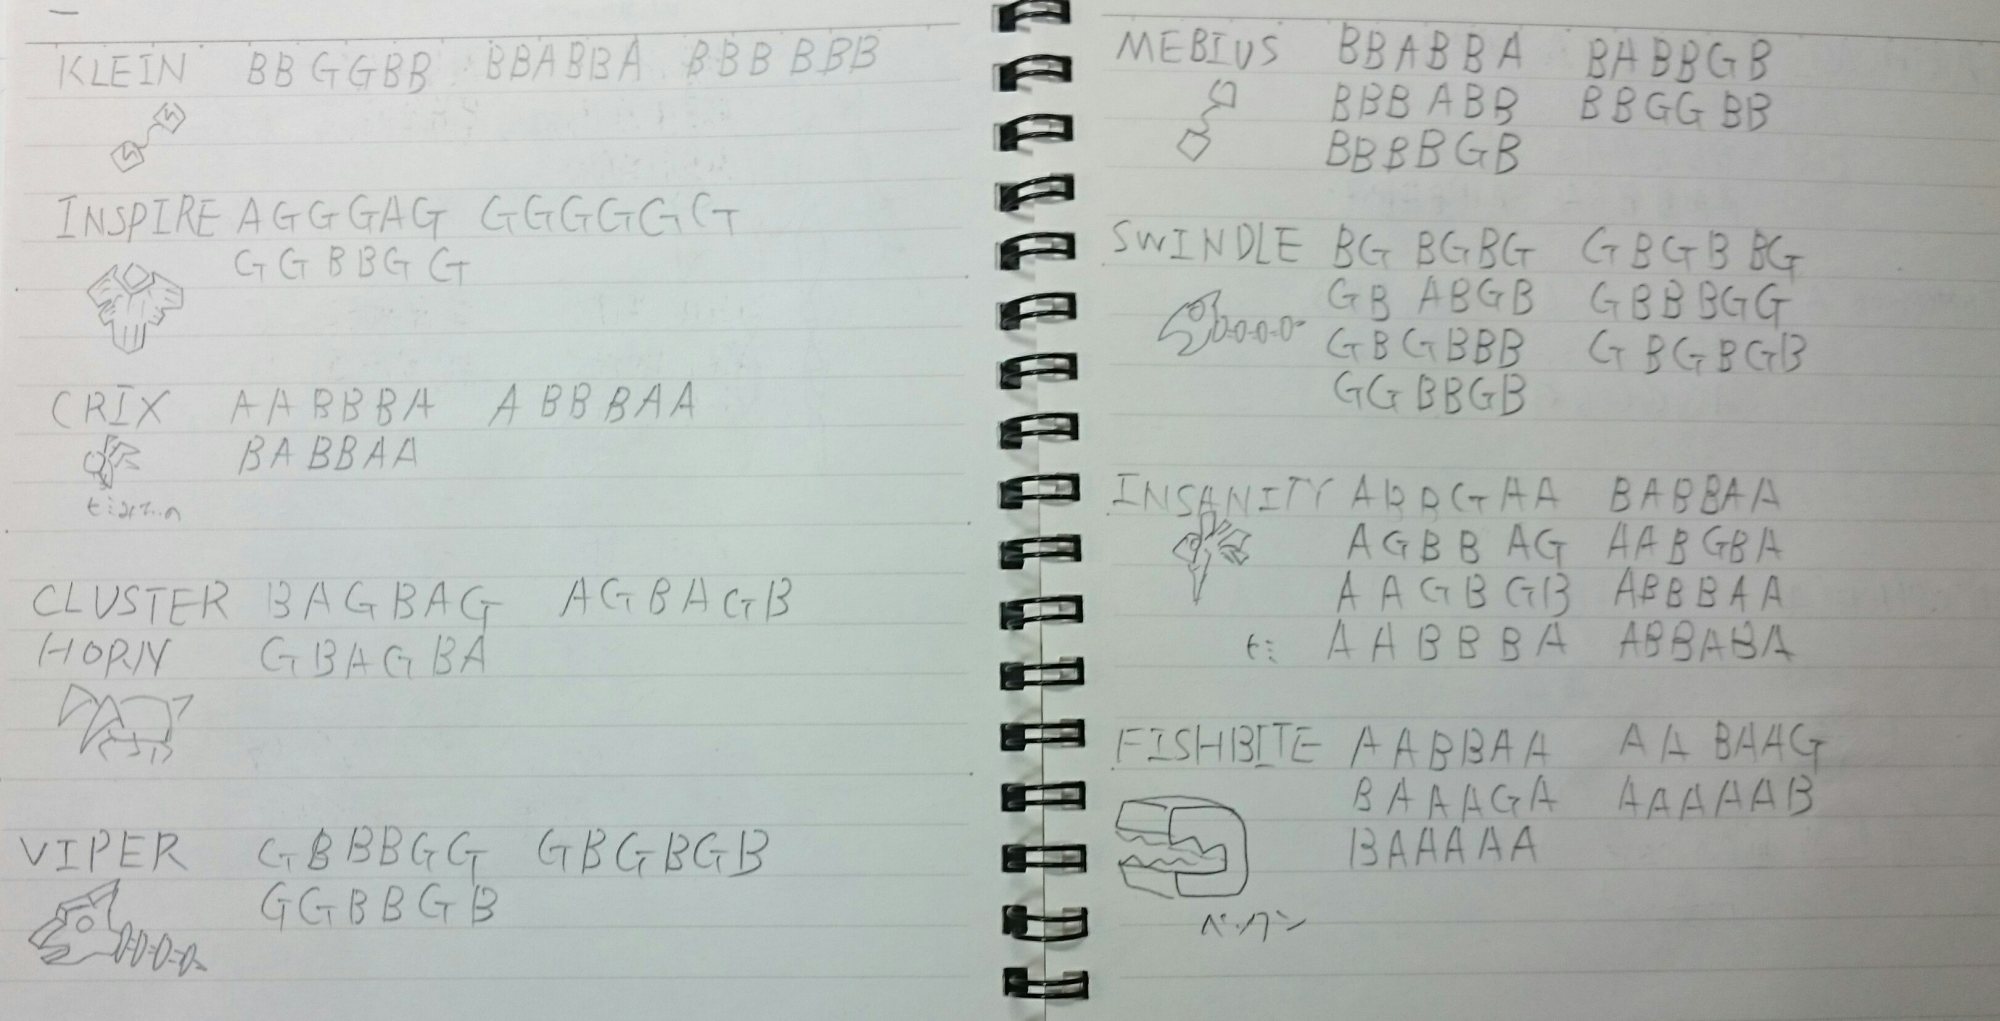 KLEIN BBGGBB BBABBA BBBBBB
INSPIRE AGGGAG GGGGGG
GGBBGG
CRIX AABBBA ABBBAA
BABBAA
CLUSTER BAGBAG AGBAGB
HORN GBAGBA
VIPER GBBBGG GBGBGB
GGBBGB
MEBIUS BBABBA BABBGB
BBBABB BBGGBB
BBBBGB
SWINDLE BGBGBG GBGBBG
GBABGB GBBBGG
GBGBBB GBGBGB
GGBBGB
INSANITY ABBGAA BABBAA
AGBBAG AABGBA
AAGBGB ABBBAA
AABBBA ABBABA
FISHBITE AABBAA AABAAG
BAAAGA AAAAAB
BAAAAA